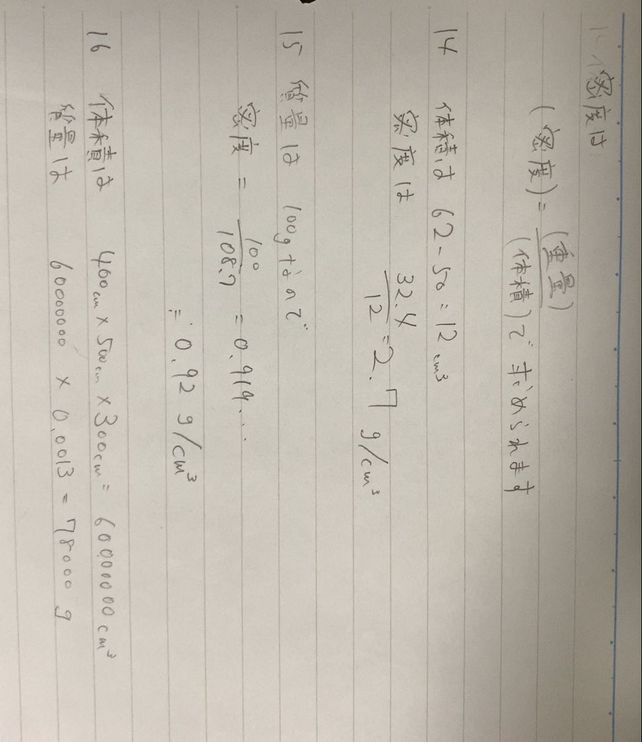 密度は
(密度) = (重量) / (体積) で求められます
14 体積は 62 - 50 = 12 cm³
密度は 32.4 / 12 = 2.7 g/cm³
15 質量は 100g なので
密度 = 100 / 108.7 = 0.919...
≒ 0.92 g/cm³
16 体積は 400cm × 500cm × 300cm = 60000000 cm³
質量は 60000000 × 0.0013 = 78000 g